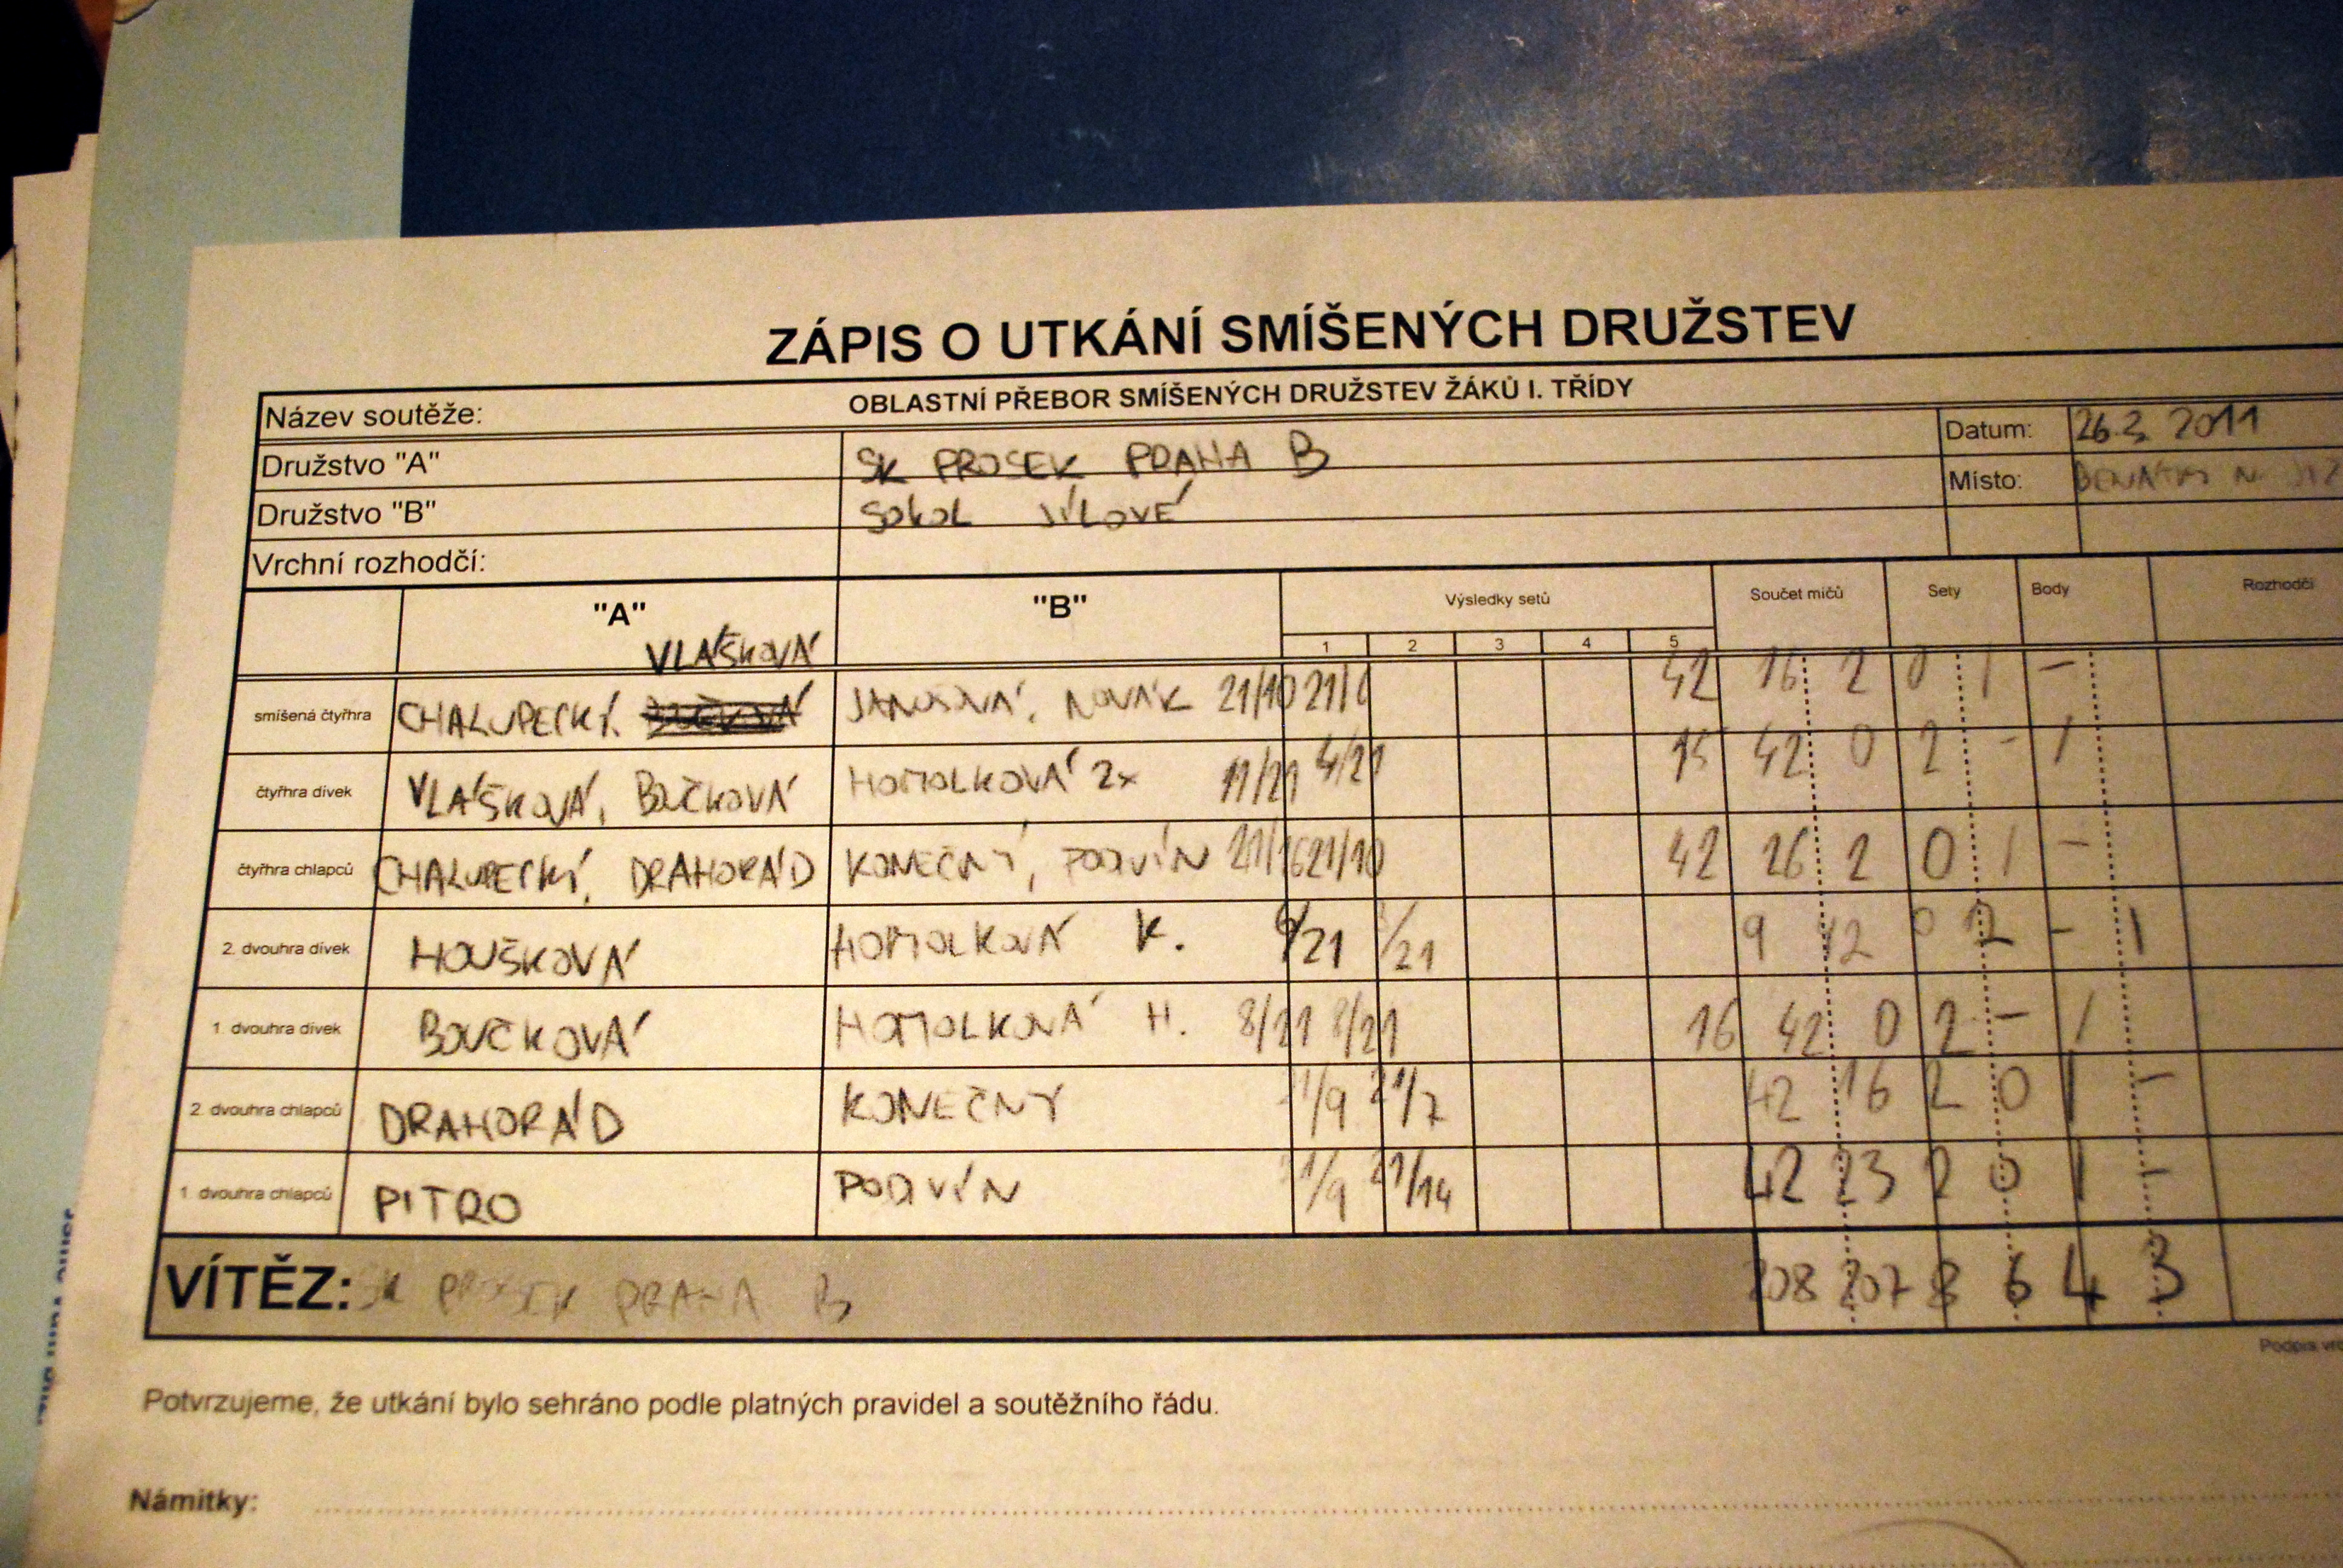 ZÁPIS O UTKÁNÍ SMÍŠENÝCH DRUŽSTEV
Název soutěže: OBLASTNÍ PŘEBOR SMÍŠENÝCH DRUŽSTEV ŽÁKŮ I. TŘÍDY
Družstvo "A" SK PROSEK PRAHA B Datum: 26.3. 2011
Družstvo "B" SOKOL JÍLOVÉ Místo: BENÁTKY N.
Vrchní rozhodčí:
"A" "B" Výsledky setů Součet míčů Sety Body Rozhodčí
1 2 3 4 5
VLAŠKOVÁ
smíšená čtyřhra CHALUPECKÝ, NOVÁK 21/10 42 16 2 0 1 -
čtyřhra dívek VLAŠKOVÁ, BOUČKOVÁ HOMOLKOVÁ 2x 11/21 4/21 15 42 0 2 - 1
čtyřhra chlapců CHALUPECKÝ, DRAHORÁD KONEČNÝ, PODVÍN 21/16 21/10 42 26 2 0 1 -
2. dvouhra dívek HOUŠKOVÁ HOMOLKOVÁ K. /21 /21 9 42 0 2 - 1
1. dvouhra dívek BOUČKOVÁ HOMOLKOVÁ H. 8/21 8/21 16 42 0 2 - 1
2. dvouhra chlapců DRAHORÁD KONEČNÝ 21/9 21/7 42 16 2 0 1 -
1. dvouhra chlapců PITRO PODVÍN 21/9 21/14 42 23 2 0 1 -
VÍTĚZ: SK PROSEK PRAHA B 208 207 8 6 4 3
Podpis
Potvrzujeme, že utkání bylo sehráno podle platných pravidel a soutěžního řádu.
Námitky: